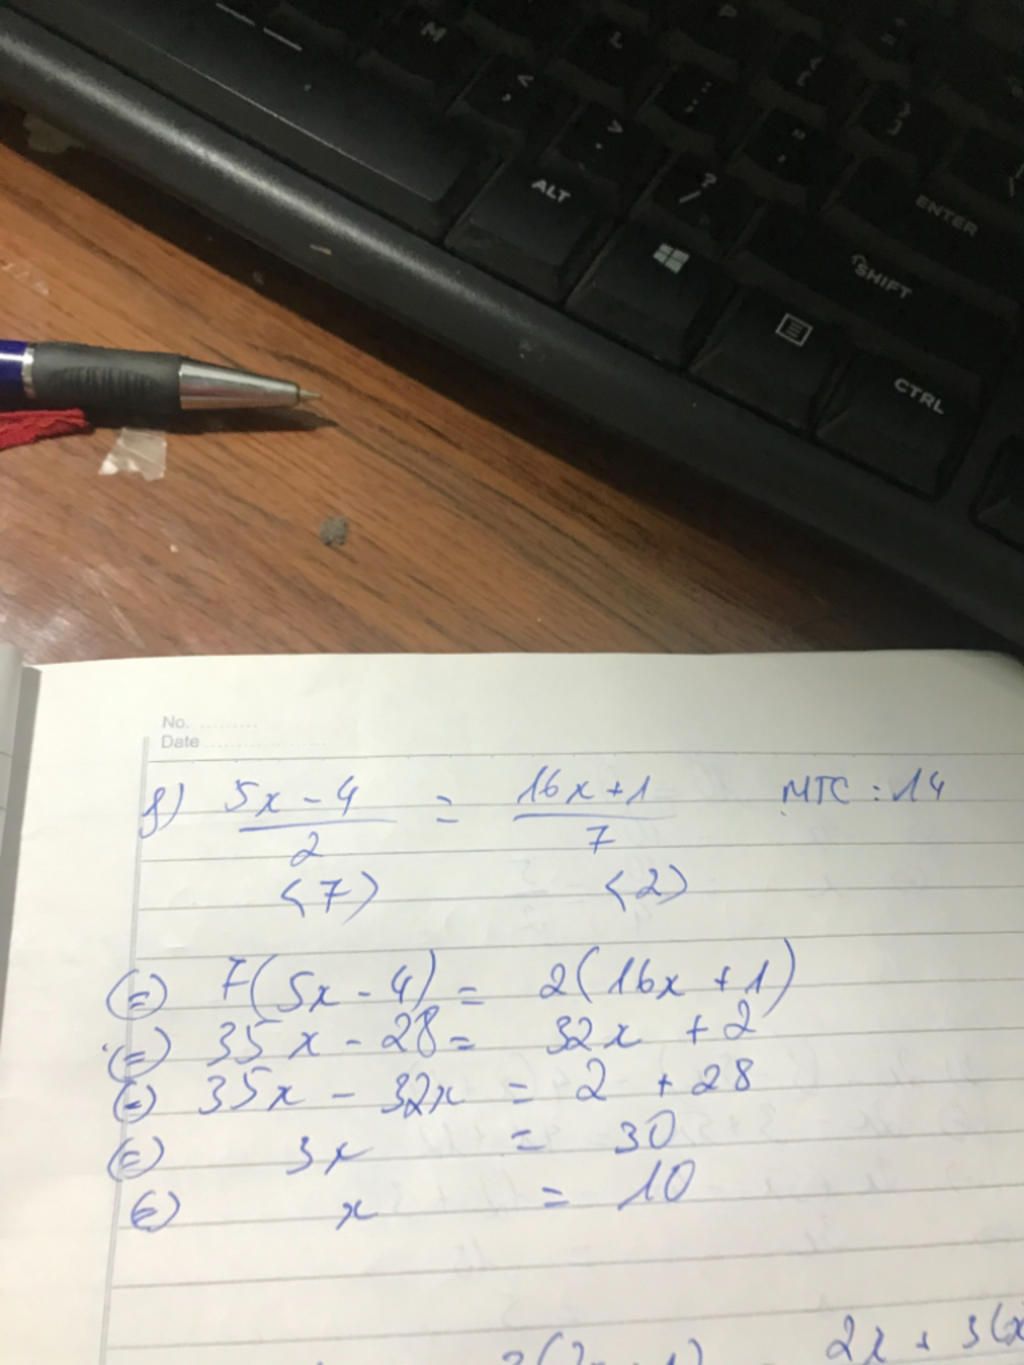 M
L
P
ALT
?
/
ENTER
SHIFT
CTRL
No.
Date
f) 5x - 4 = 16x + 1 MTC : 14
2 7
<7> <2>
(=) 7(5x - 4) = 2(16x + 1)
(=) 35x - 28 = 32x + 2
(=) 35x - 32x = 2 + 28
(=) 3x = 30
(=) x = 10
2x + 3(x